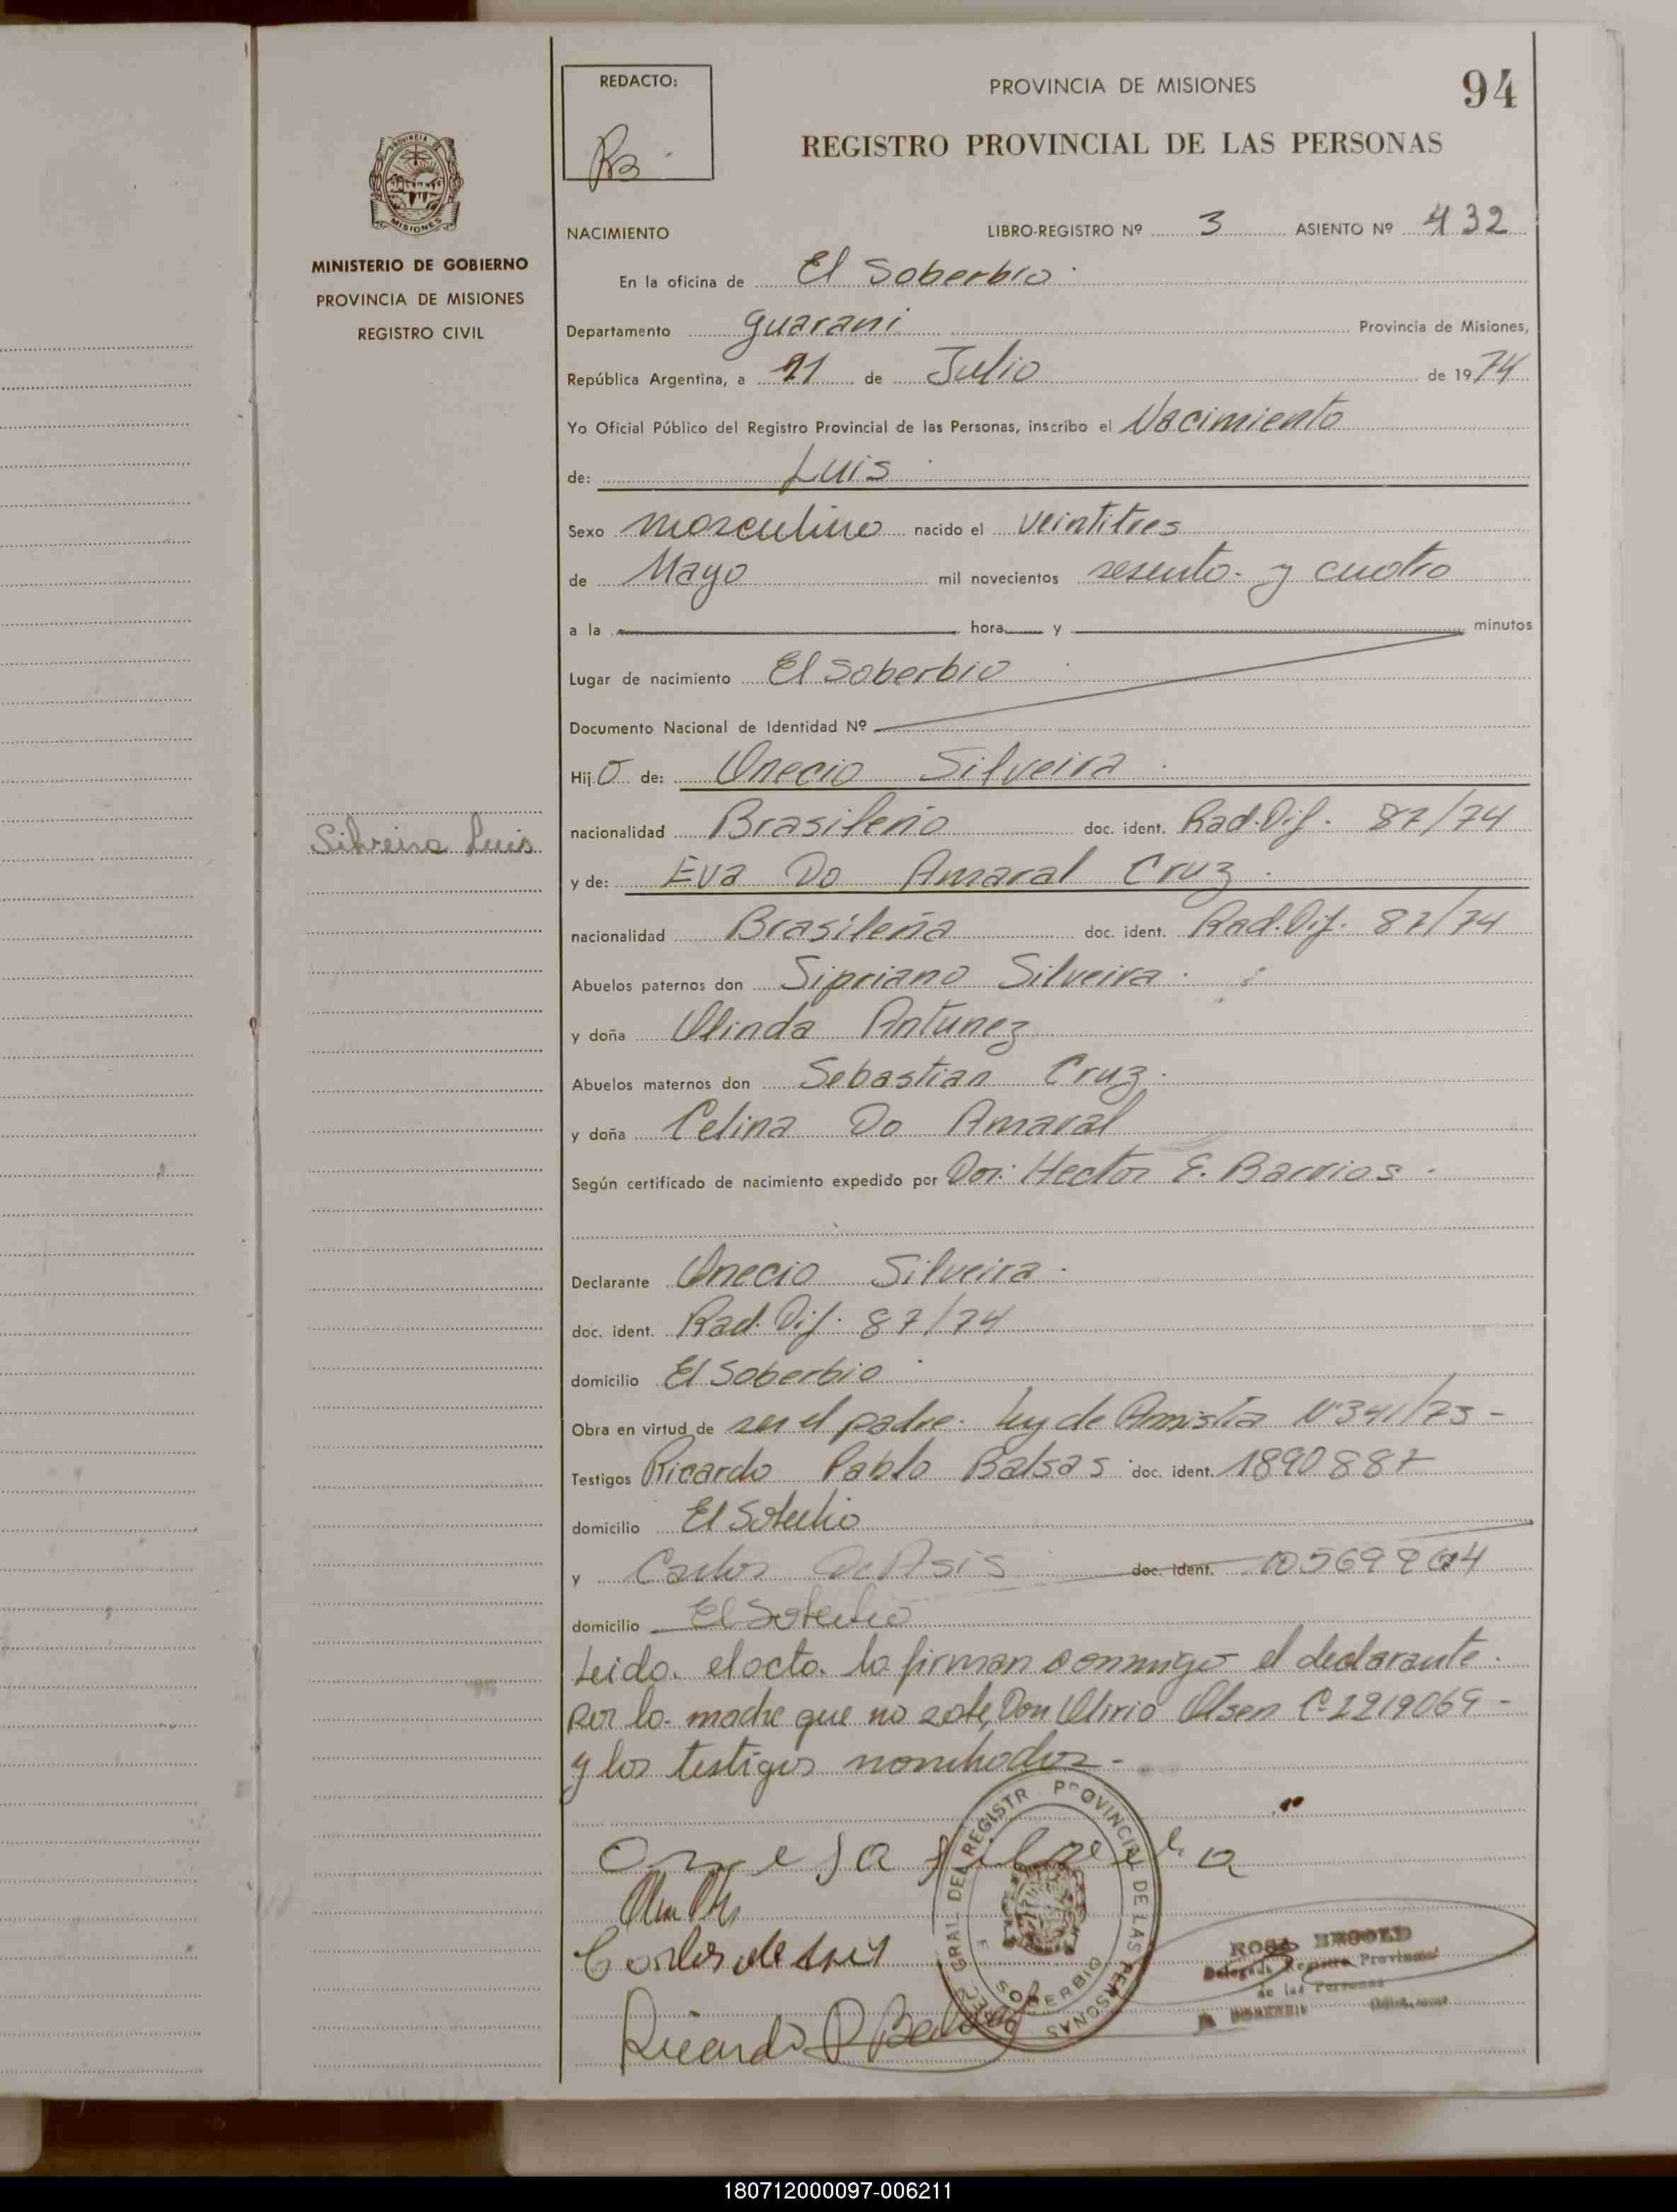 REDACTO:
PROVINCIA DE MISIONES
94
REGISTRO PROVINCIAL DE LAS PERSONAS
PROVINCIA DE
MISIONES
MINISTERIO DE GOBIERNO
PROVINCIA DE MISIONES
REGISTRO CIVIL
NACIMIENTO LIBRO-REGISTRO Nº 3 ASIENTO Nº 432
En la oficina de El Soberbio
Departamento Guarani Provincia de Misiones,
República Argentina, a 21 de Julio de 1974
Yo Oficial Público del Registro Provincial de las Personas, inscribo el Nacimiento
de: Luis
Sexo masculino nacido el veintitres
de Mayo mil novecientos sesenta y cuatro
a la hora y minutos
Lugar de nacimiento El Soberbio
Documento Nacional de Identidad Nº
Hijo de: Onecio Silveira
Silveira Luis
nacionalidad Brasileño doc. ident. Rad. Dif. 87/74
y de: Eva Do Amaral Cruz
nacionalidad Brasileña doc. ident. Rad. Dif. 87/74
Abuelos paternos don Sipriano Silveira
y doña Olinda Antunez
Abuelos maternos don Sebastian Cruz
y doña Celina Do Amaral
Según certificado de nacimiento expedido por Dor: Hector E. Barrios
Declarante Onecio Silveira
doc. ident. Rad. Dif. 87/74
domicilio El Soberbio
Obra en virtud de ser el padre. Ley de Amistia Nº 341/73 -
Testigos Ricardo Pablo Balsas doc. ident. 1890887
domicilio El Soberbio
y Carlos De Asis doc. ident.
domicilio El Soberbio
Leido el acta la firman conmigo el declarante.
Por la madre que no sabe, Don Olirio Olsen C. 2219069 -
y los testigos nombrados -
Onesio Silveira
Carlos de Asis
Ricardo P Balsas
DIREC. GRAL. DEL REGISTR. PROVINCIAL DE LAS PERSONAS
SOBERBIO
ROSA
Delegada Registro Provincial
de las Personas
180712000097-006211